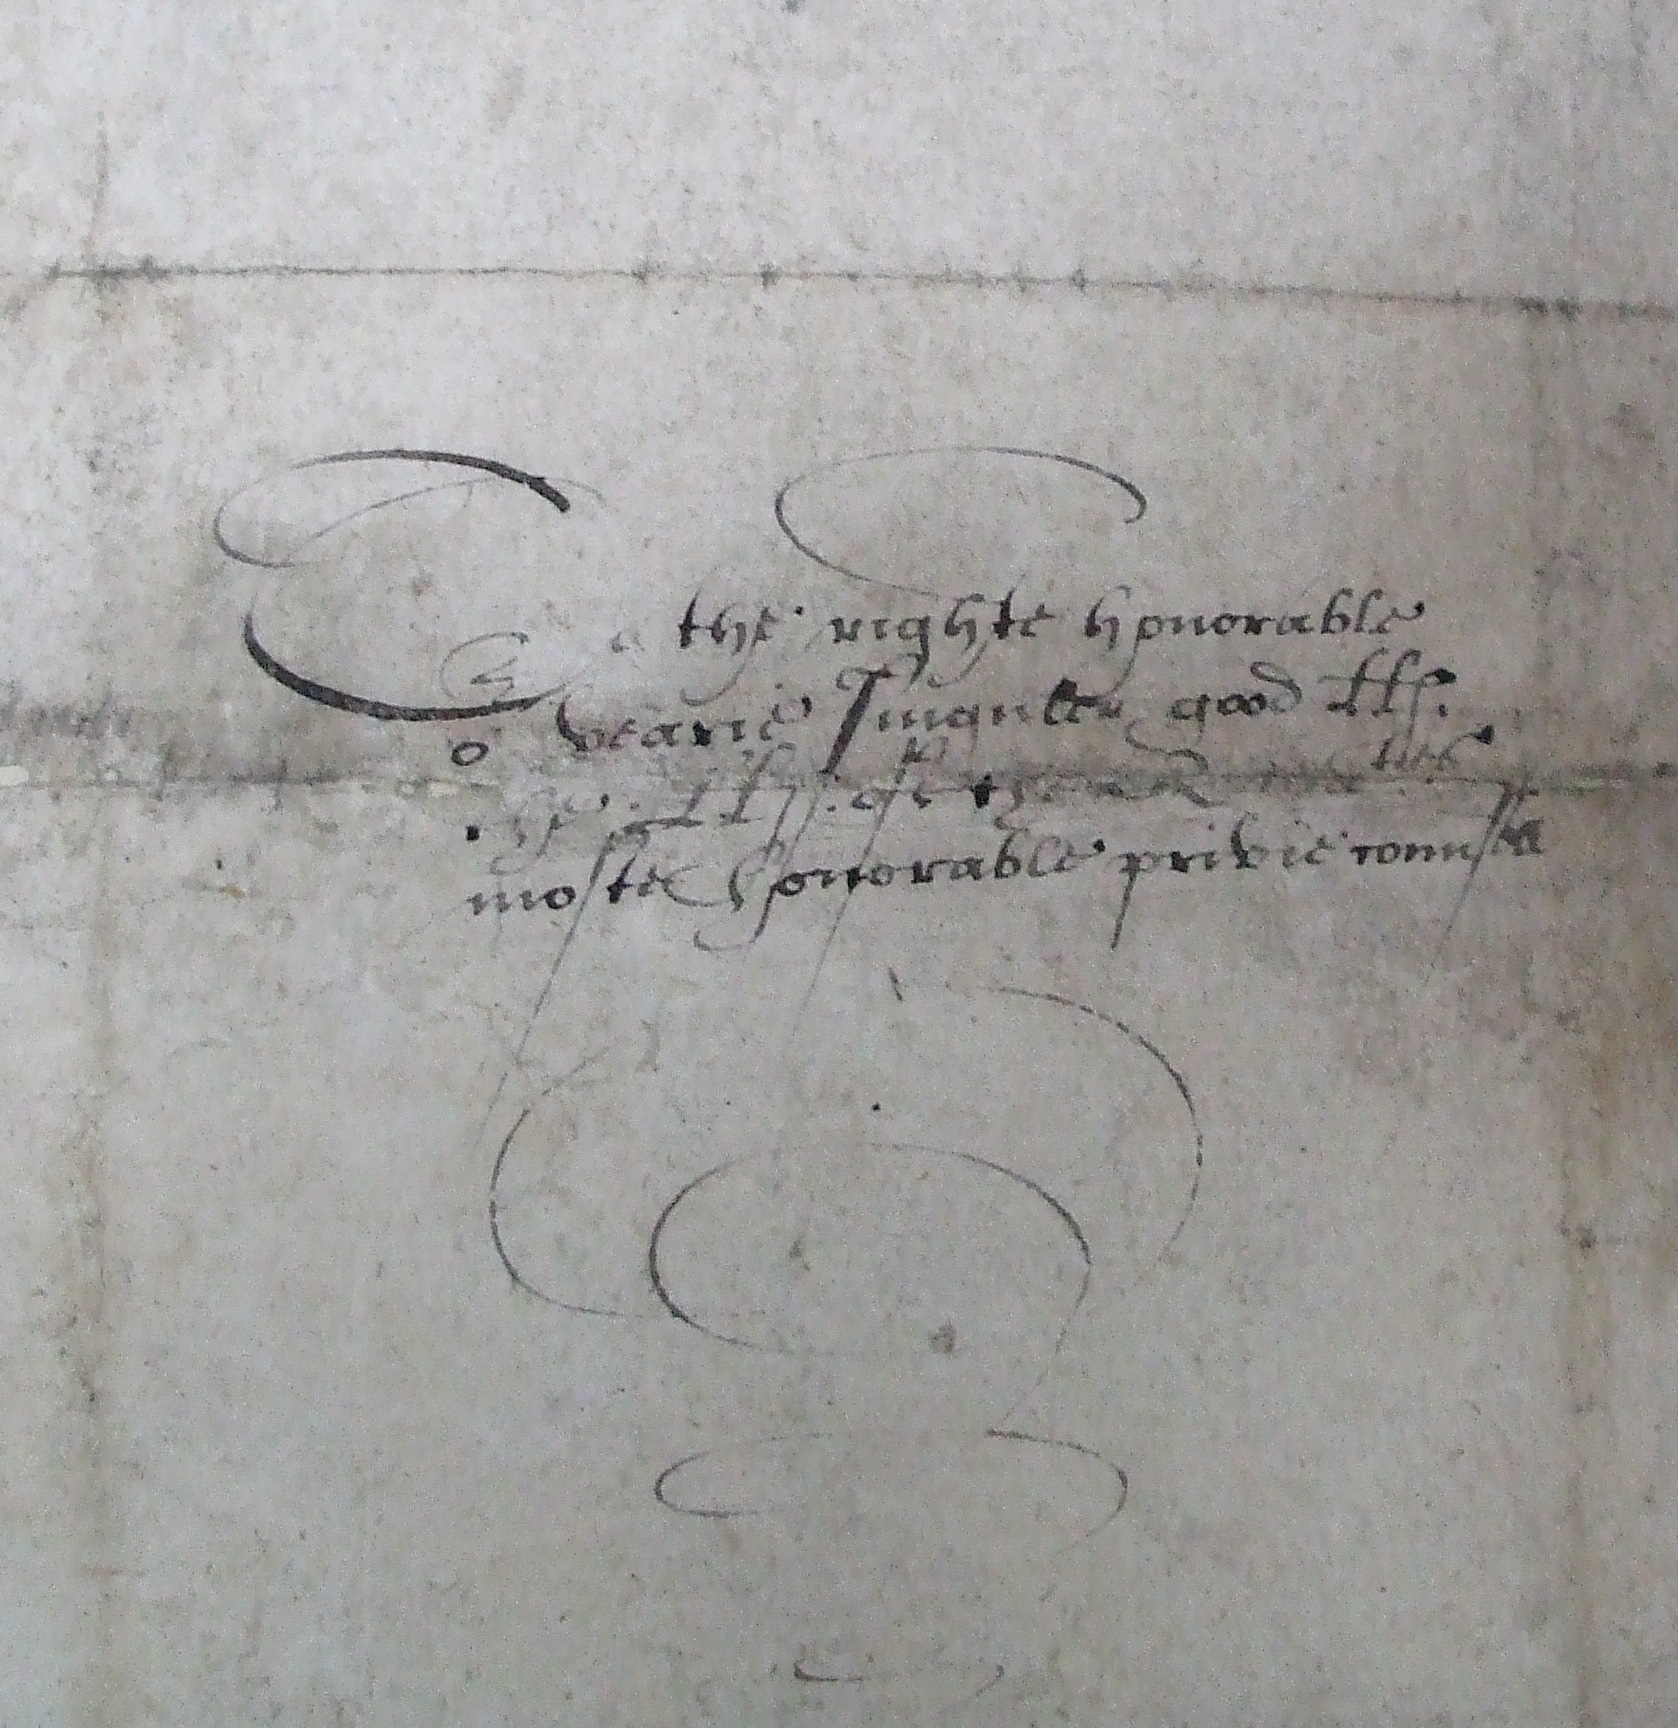 To the righte honorable
o^r vearie singuler good LLs.
the LLs. of the Q ma^ties
moste honorable privie counsell